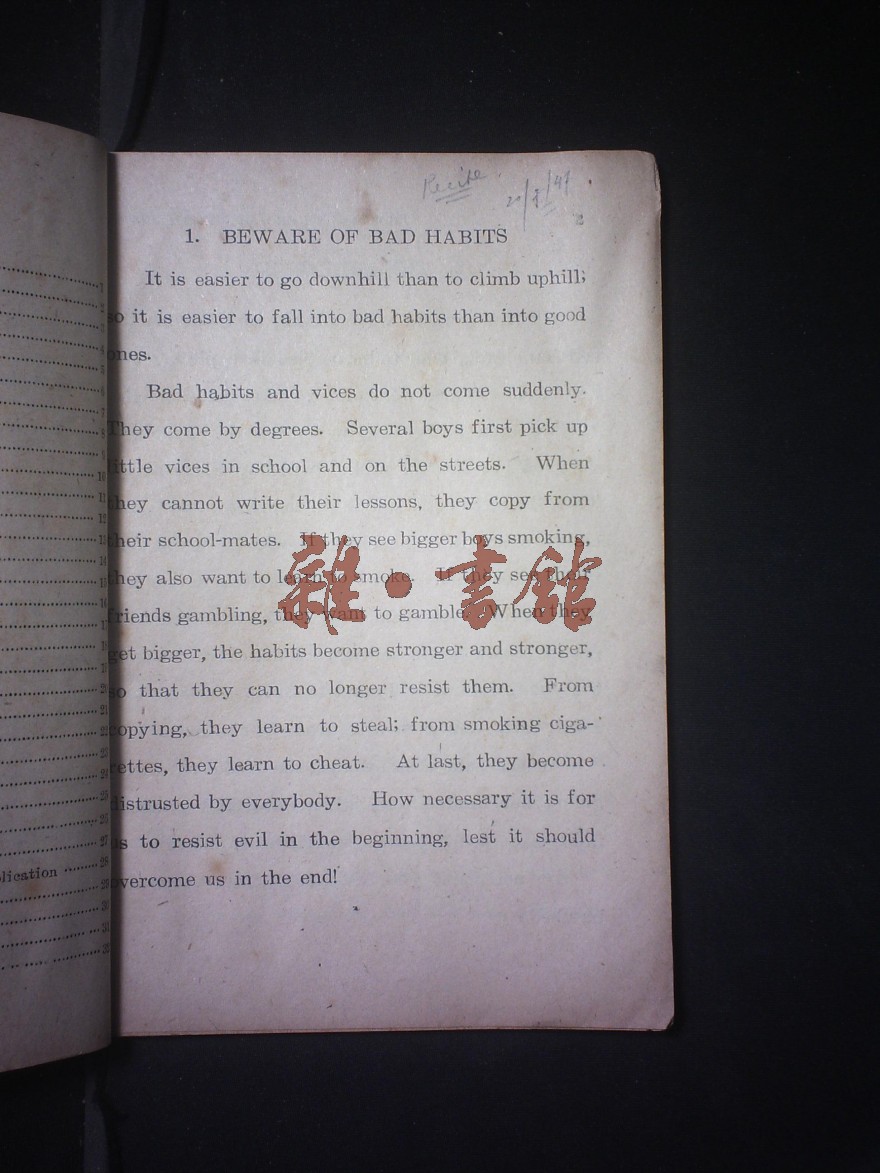 Recite
1. BEWARE OF BAD HABITS
It is easier to go downhill than to climb uphill;
so it is easier to fall into bad habits than into good
ones.
Bad habits and vices do not come suddenly.
They come by degrees. Several boys first pick up
little vices in school and on the streets. When
they cannot write their lessons, they copy from
their school-mates. If they see bigger boys smoking,
they also want to learn to smoke. If they see their
friends gambling, they want to gamble. When they
get bigger, the habits become stronger and stronger,
so that they can no longer resist them. From
copying, they learn to steal; from smoking ciga-
rettes, they learn to cheat. At last, they become
distrusted by everybody. How necessary it is for
us to resist evil in the beginning, lest it should
overcome us in the end!
雜·書館
lication
1
2
3
4
5
6
7
8
9
10
11
12
13
14
15
16
17
18
19
20
21
22
23
24
25
26
27
28
29
30
31
32